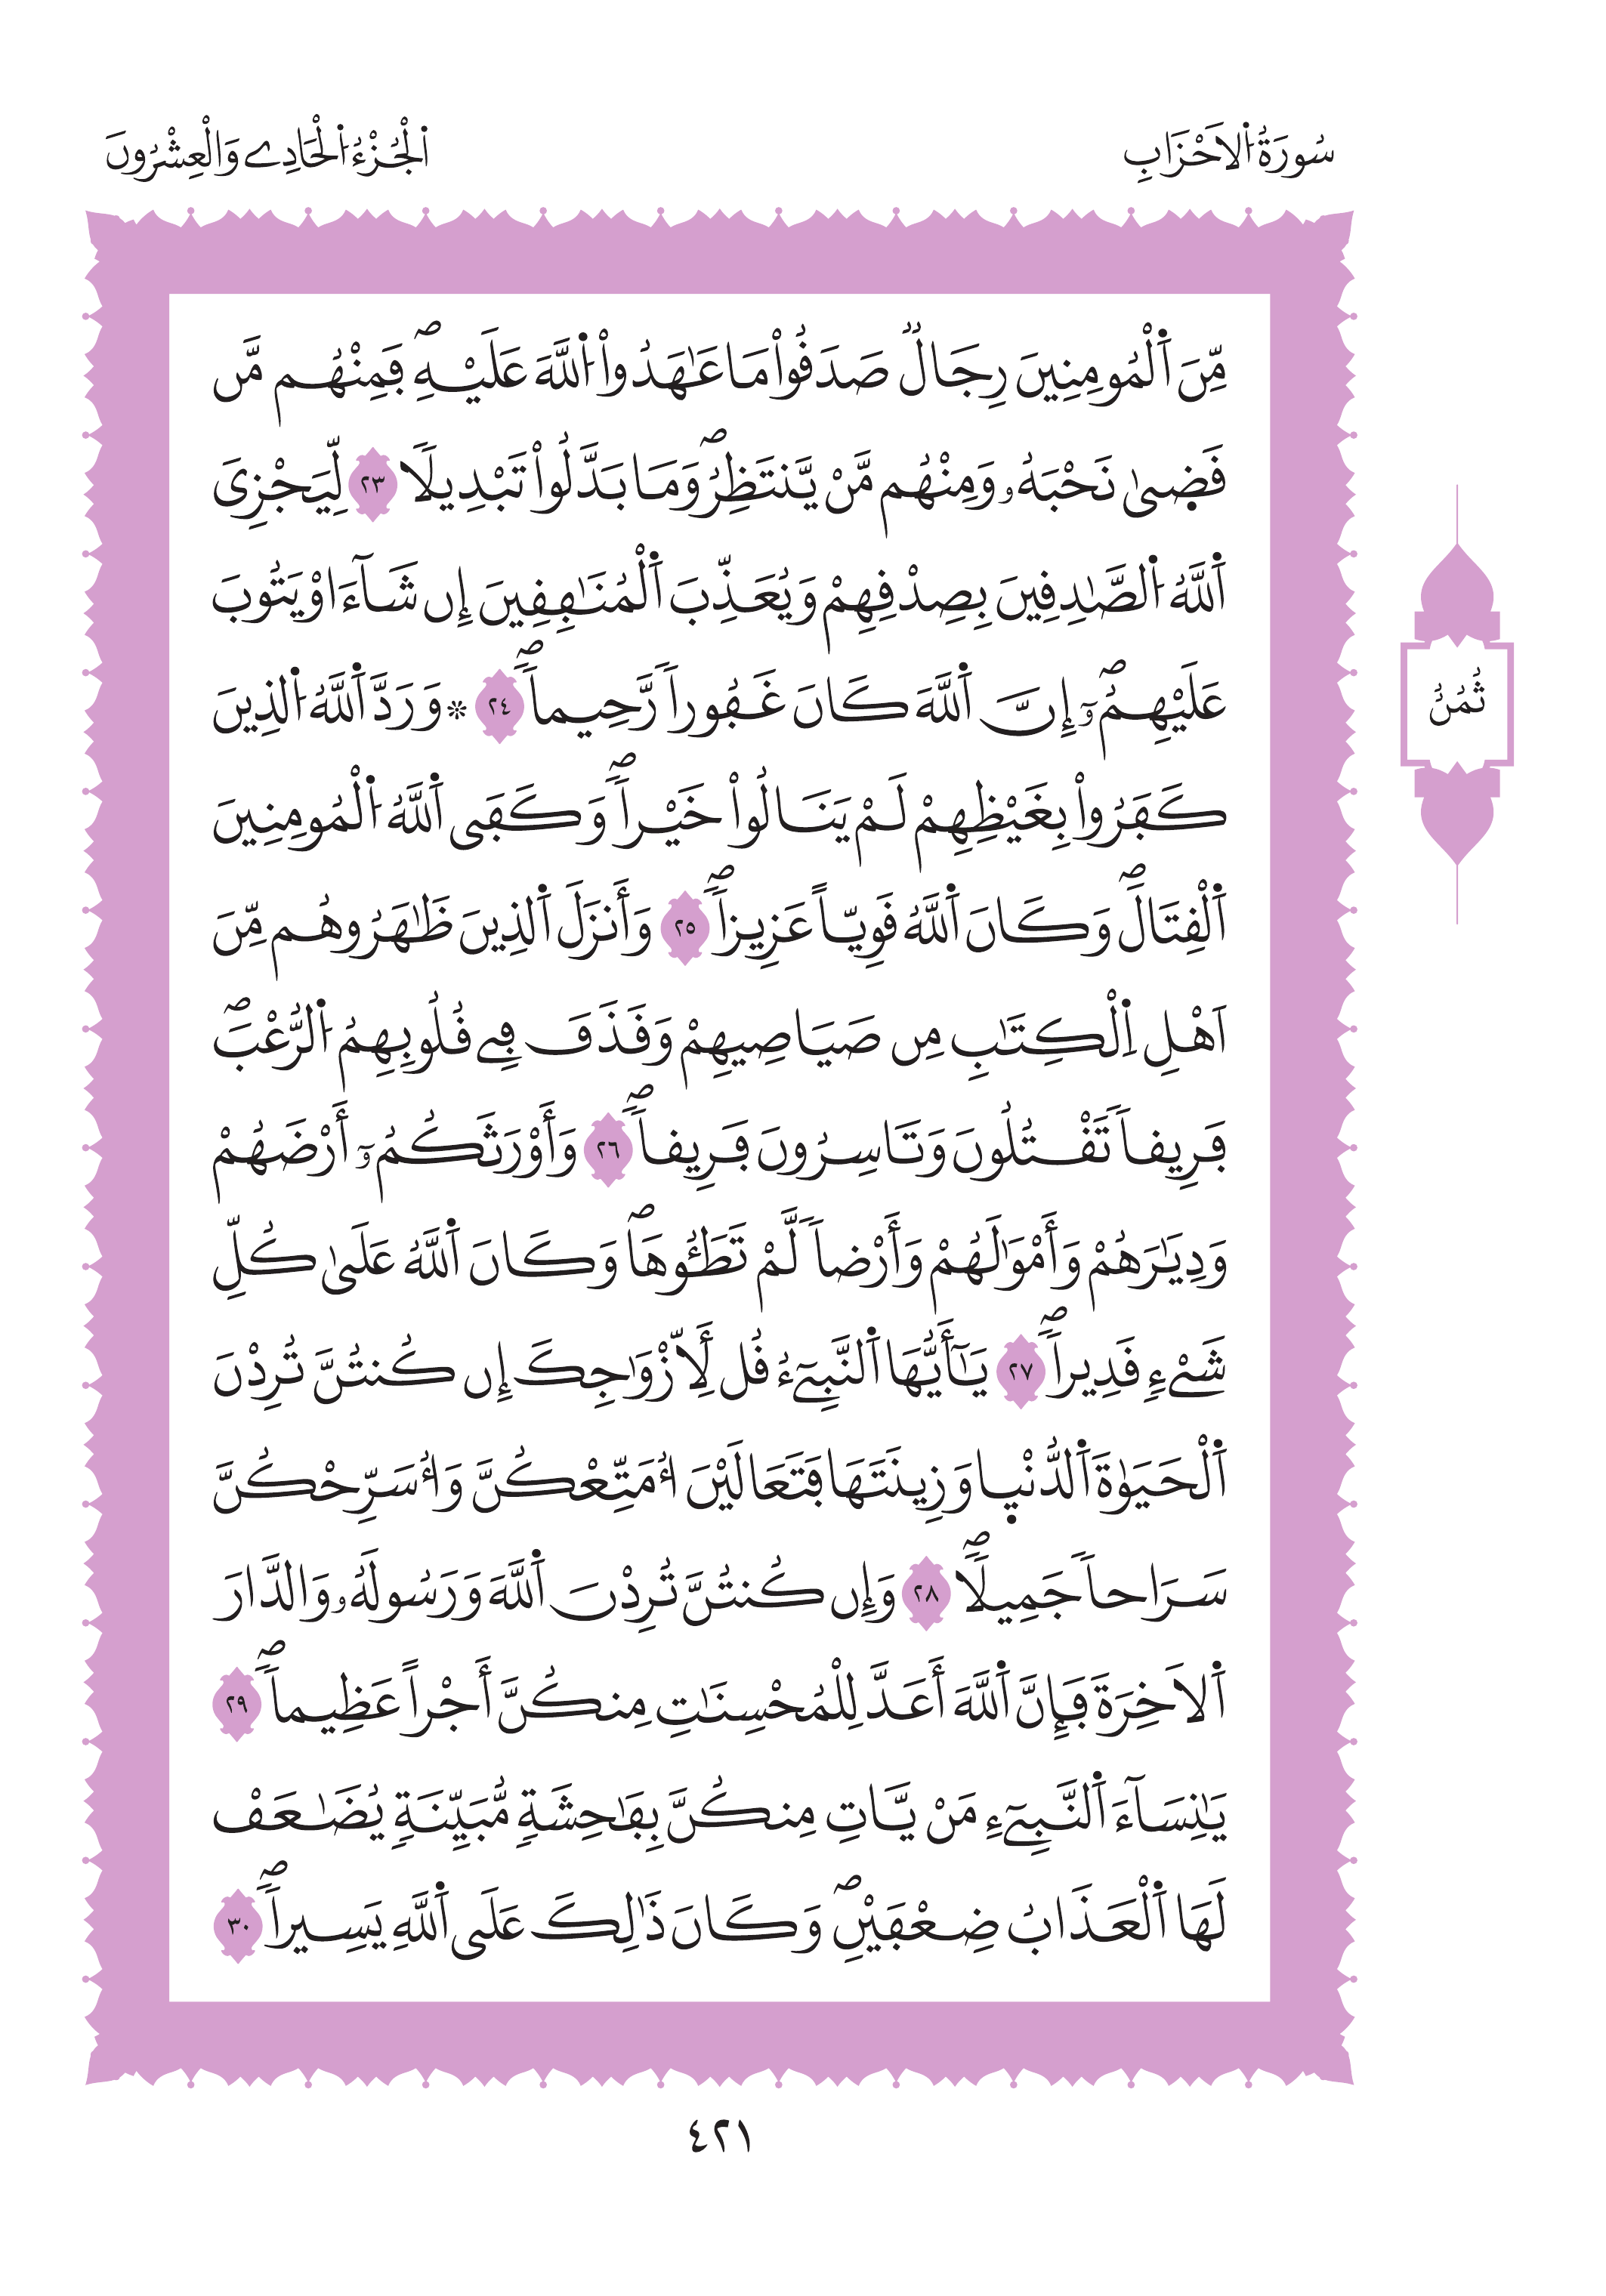 سُورَةُ اُ۬لَاحْزَابِ
اَ۬لْجُزْءُ اُ۬لْحَادِے وَالْعِشْرُونَ
مِّنَ اَ۬لْمُومِنِينَ رِجَالٞ صَدَقُواْ مَا عَٰهَدُواْ اُ۬للَّهَ عَلَيْهِۖ فَمِنْهُم مَّن
قَض۪ىٰ نَحْبَهُۥ وَمِنْهُم مَّنْ يَّنتَظِرُۖ وَمَا بَدَّلُواْ تَبْدِيلاٗ ٢٣ لِّيَجْزِىَ
اَ۬للَّهُ اُ۬لصَّٰدِقِينَ بِصِدْقِهِمْ وَيُعَذِّبَ اَ۬لْمُنَٰفِقِينَ إِن شَآءَ اوْ يَتُوبَ
عَلَيْهِمُۥٓۖ إِنَّ اَ۬للَّهَ كَانَ غَفُوراٗ رَّحِيماٗۖ ٢٤ ۞ وَرَدَّ اَ۬للَّهُ اُ۬لذِينَ
كَفَرُواْ بِغَيْظِهِمْ لَمْ يَنَالُواْ خَيْراٗۖ وَكَفَى اَ۬للَّهُ اُ۬لْمُومِنِينَ
اَ۬لْقِتَالَۖ وَكَانَ اَ۬للَّهُ قَوِيّاً عَزِيزاٗۖ ٢٥ وَأَنزَلَ اَ۬لذِينَ ظَٰهَرُوهُم مِّنَ
اَهْلِ اِ۬لْكِتَٰبِ مِن صَيَاصِيهِمْ وَقَذَفَ فِے قُلُوبِهِمُ اُ۬لرُّعْبَۖ
فَرِيقاٗ تَقْتُلُونَ وَتَاسِرُونَ فَرِيقاٗۖ ٢٦ وَأَوْرَثَكُمُۥٓ أَرْضَهُمْ
وَدِيَٰرَهُمْ وَأَمْوَٰلَهُمْ وَأَرْضاٗ لَّمْ تَطَـُٔوهَاۖ وَكَانَ اَ۬للَّهُ عَلَىٰ كُلِّ
شَےْءٖ قَدِيراٗۖ ٢٧ يَٰٓأَيُّهَا اَ۬لنَّبِےٓءُ قُل لِّأَزْوَٰجِكَ إِن كُنتُنَّ تُرِدْنَ
اَ۬لْحَيَوٰةَ اَ۬لدُّنْي۪ا وَزِينَتَهَا فَتَعَالَيْنَ أُمَتِّعْكُنَّ وَأُسَرِّحْكُنَّ
سَرَاحاٗ جَمِيلاٗۖ ٢٨ وَإِن كُنتُنَّ تُرِدْنَ اَ۬للَّهَ وَرَسُولَهُۥ وَالدَّارَ
اَ۬لَاخِرَةَ فَإِنَّ اَ۬للَّهَ أَعَدَّ لِلْمُحْسِنَٰتِ مِنكُنَّ أَجْراً عَظِيماٗۖ ٢٩
يَٰنِسَآءَ اَ۬لنَّبِےٓءِ مَنْ يَّاتِ مِنكُنَّ بِفَٰحِشَةٖ مُّبَيِّنَةٖ يُضَٰعَفْ
لَهَا اَ۬لْعَذَابُ ضِعْفَيْنِۖ وَكَانَ ذَٰلِكَ عَلَى اَ۬للَّهِ يَسِيراٗۖ ٣٠
ثُمُنُ
٤٢١